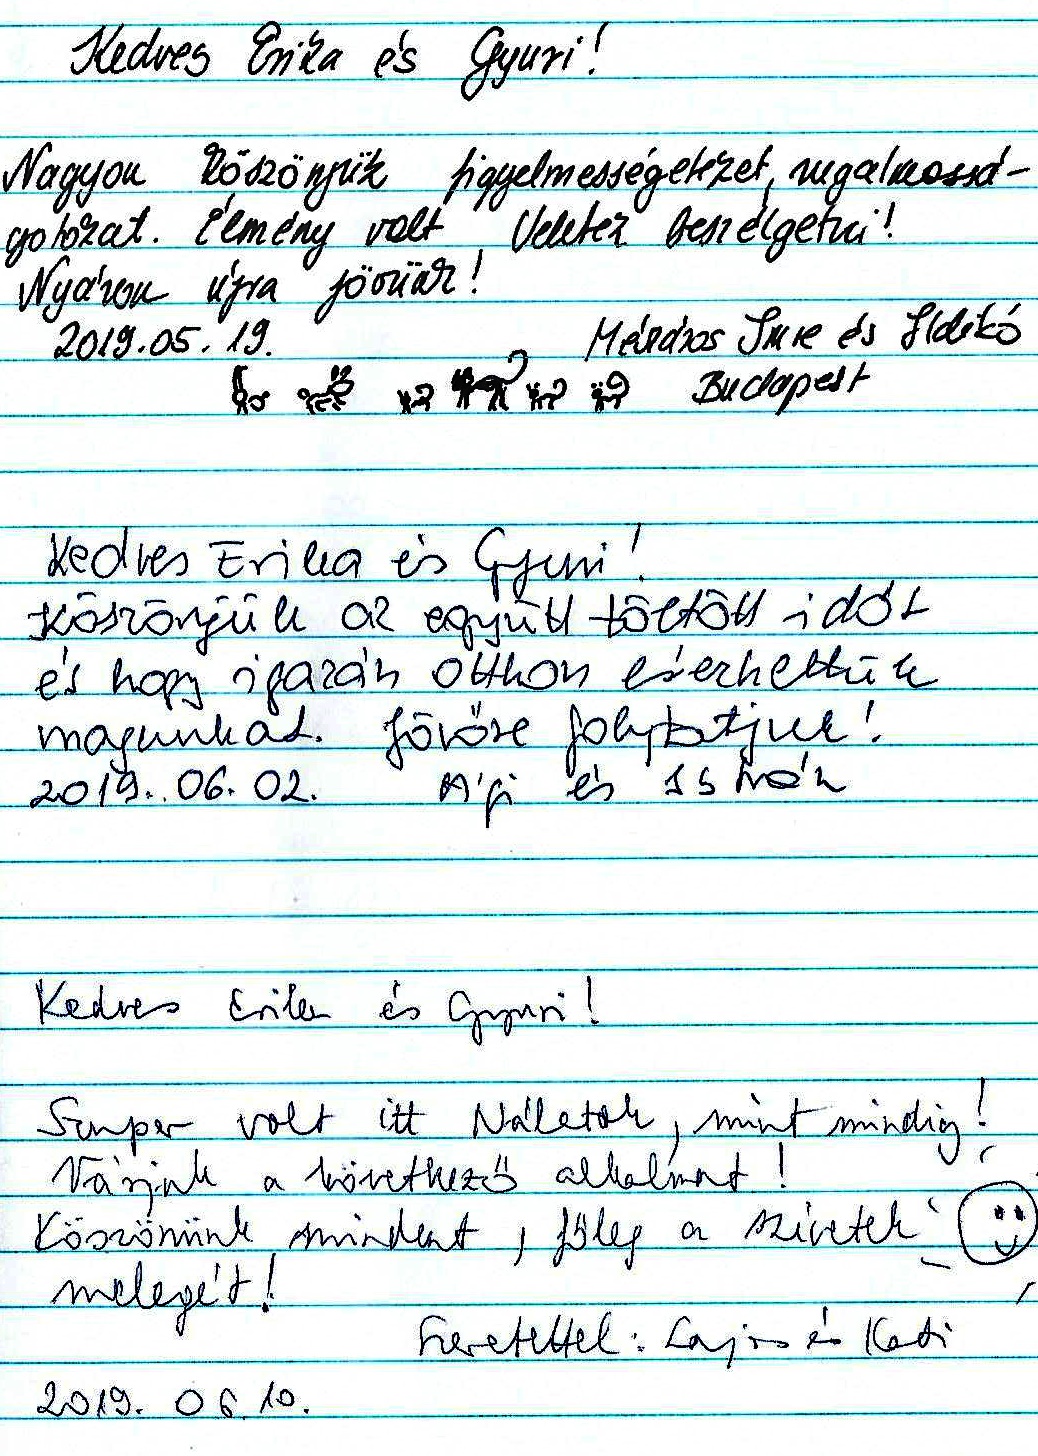 Kedves Erika és Gyuri!
Nagyon köszönjük figyelmességeteket, rugalmassá-
gotokat. Élmény volt Veletek beszélgetni!
Nyáron újra jövünk!
2019.05.19. Mészáros Imre és Ildikó
Budapest
Kedves Erika és Gyuri!
Köszönjük az együtt töltött időt
és hogy igazán otthon érezhettük
magunkat. Jövőre folytatjuk!
2019.06.02. Ági és István
Kedves Erika és Gyuri!
Szuper volt itt Nálatok, mint mindig!
Várjuk a következő alkalmat!
Köszönünk mindent, főleg a szívetek
melegét!
Szeretettel: Lajos és Kati
2019. 06.10.